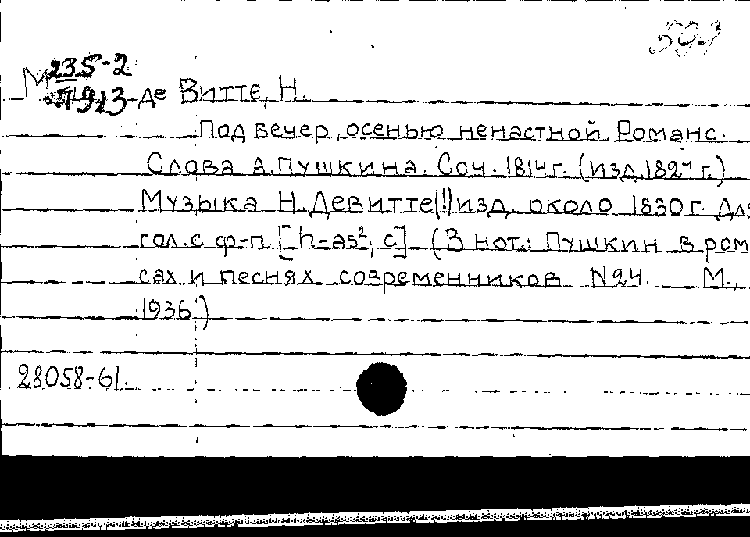 59-1
М 235-2
П913
Де Витте, Н.
Под вечер, осенью ненастной. Романс.
Слова А. Пушкина. Соч. 1814 г. (изд. 1827 г.)
Музыка Н. Девитте(!) изд. около 1830 г. Для
гол. с ф-п. [h-as², c] (В нот.: Пушкин в ром
сах и песнях современников N 24 М.,
1936.)
28058-61.